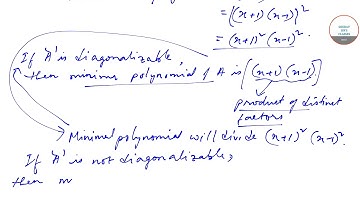 = {(x+1)(x-1)}²
= (x+1)² (x-1)².
If 'A' is diagonalizable,
then minimal polynomial of A is [(x+1)(x-1)]
product of distinct
factors
Minimal polynomial will divide (x+1)² (x-1)².
If 'A' is not diagonalizable,
then m